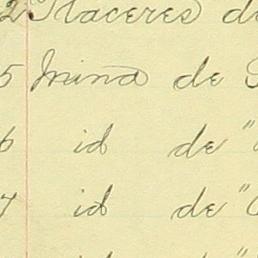 2 Placeres de
5 Mina de
6 id de "
7 id de "
id de "